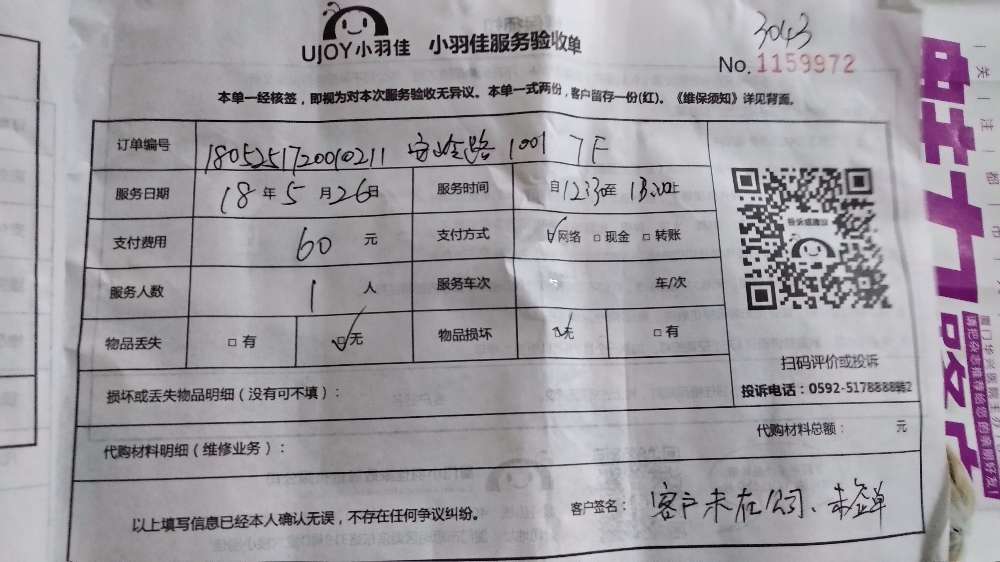 3043
UJOY小羽佳 小羽佳服务验收单
No.1159972
本单一经核签，即视为对本次服务验收无异议。本单一式两份，客户留存一份(红)。《维保须知》详见背面。
订单编号 1805251720010211 安岭路 1001 7F
服务日期 18年5月26日 服务时间 自1233至13:20止
支付费用 60元 支付方式 ☑网络 □现金 □转账
服务人数 1人 服务车次 车/次
物品丢失 □有 ☑无 物品损坏 ☑无 □有
扫码评价或投诉
投诉电话：0592-5178888转2
损坏或丢失物品明细（没有可不填）：
代购材料明细（维修业务）： 代购材料总额： 元
以上填写信息已经本人确认无误，不存在任何争议纠纷。 客户签名：客户未在公司、未签单
关注都市
请把杂志推荐给您的亲朋好友!